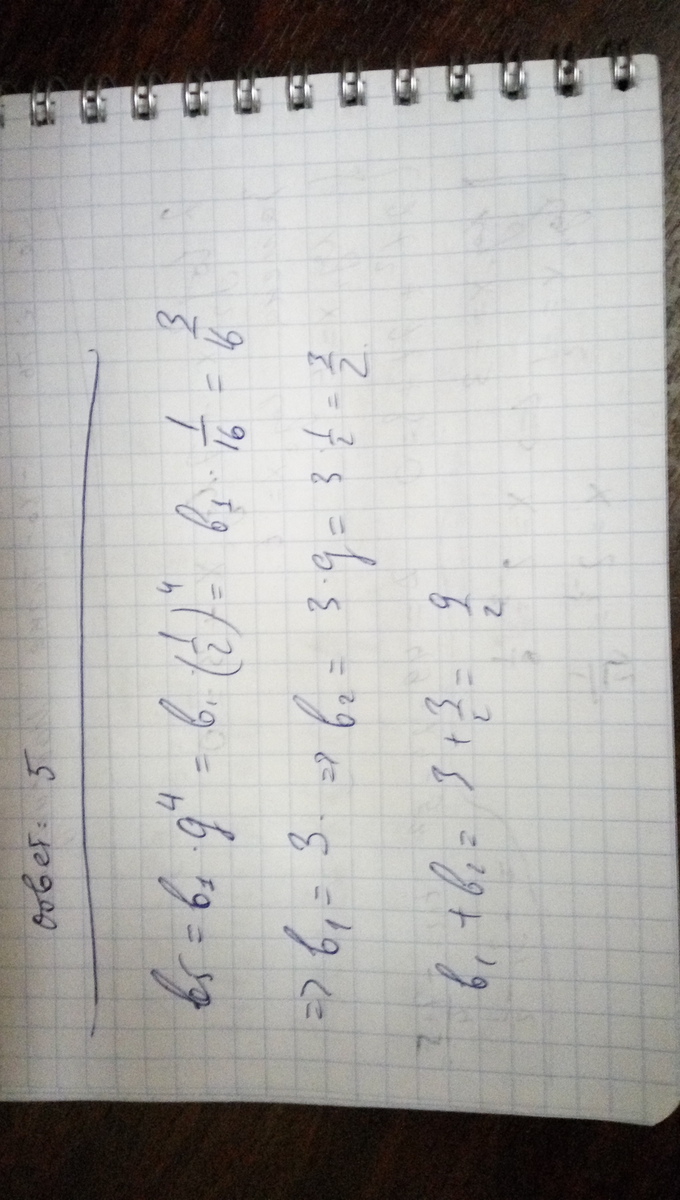 Ответ: 5
b₅ = b₁ · q⁴ = b₁ · (1/2)⁴ = b₁ · 1/16 = 3/16
=> b₁ = 3. => b₂ = 3 · q = 3 1/2 = 3/2.
b₁ + b₂ = 3 + 3/2 = 9/2